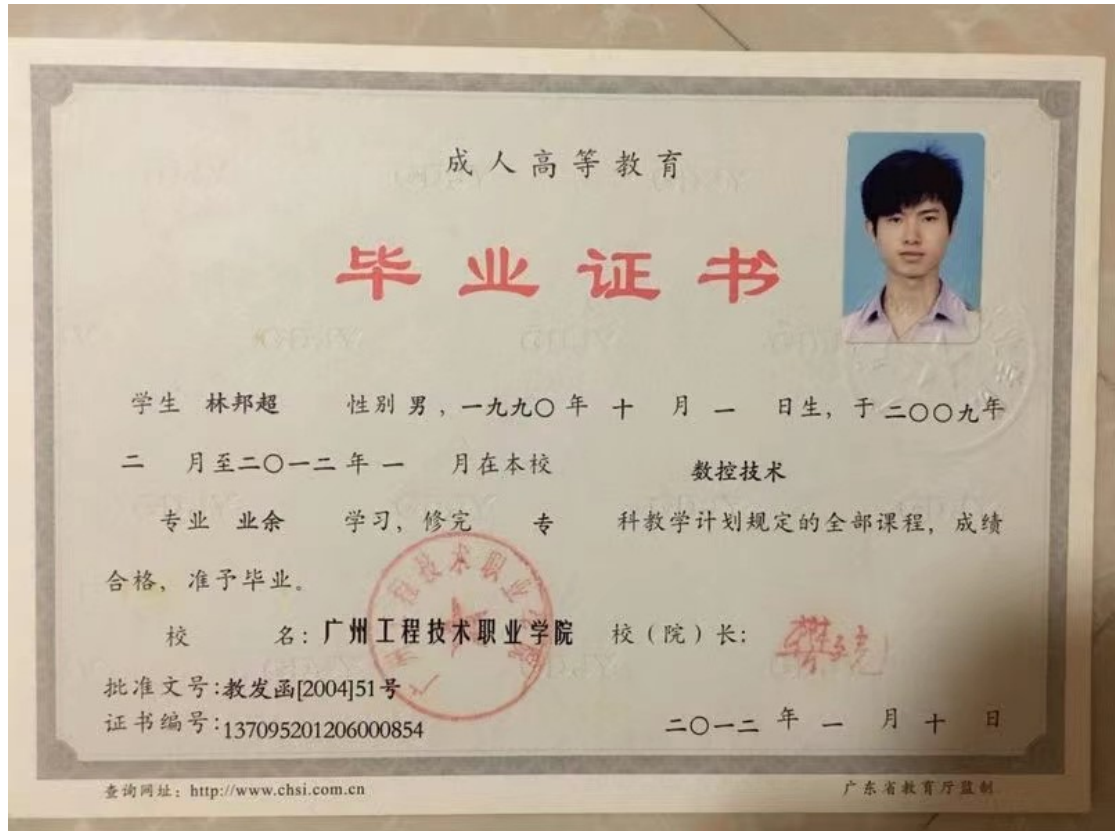 成人高等教育
毕业证书
学生 林邦超 性别 男，一九九〇年 十 月 一 日生，于二〇〇九年
二 月至二〇一二年 一 月在本校 数控技术
专业 业余 学习，修完 专 科教学计划规定的全部课程，成绩
合格，准予毕业。
校 名：广州工程技术职业学院 校（院）长：
批准文号：教发函[2004]51号
证书编号：137095201206000854
二〇一二 年 一 月 十 日
查询网址：http://www.chsi.com.cn
广东省教育厅监制